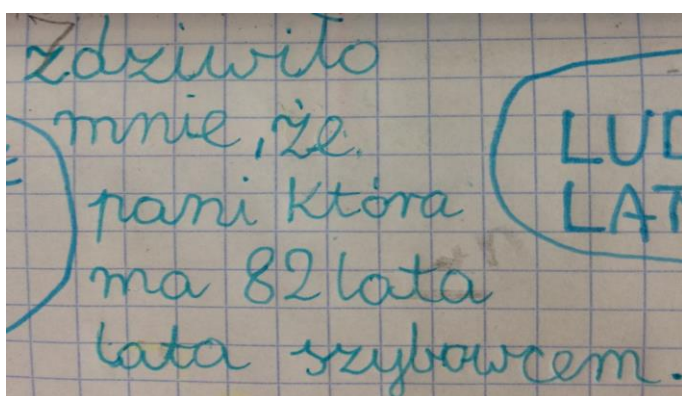 Zdziwiło
mnie, że
pani która
ma 82 lata
lata szybowcem.
LUD
LAT